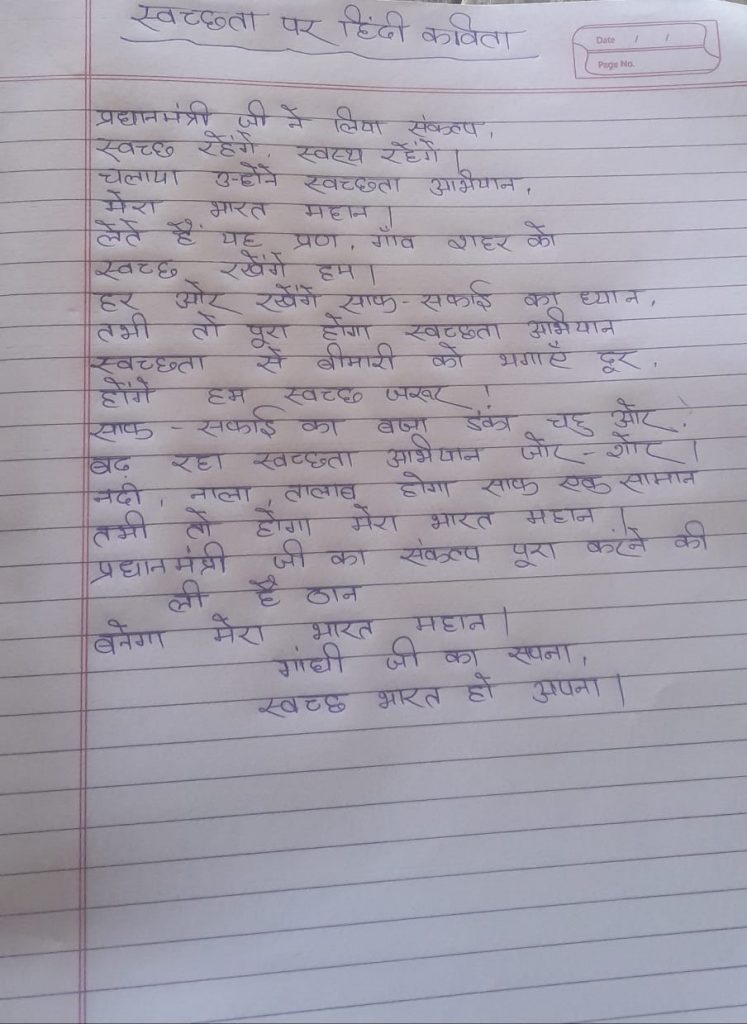 स्वच्छता पर हिंदी कविता
Date / /
Page No.
प्रधानमंत्री जी ने लिया संकल्प,
स्वच्छ रहेंगे, स्वस्थ रहेंगे।
चलाया उन्होंने स्वच्छता अभियान,
मेरा भारत महान।
लेते हैं यह प्रण, गाँव शहर को
स्वच्छ रखेंगे हम।
हर ओर रखेंगे साफ-सफाई का ध्यान,
तभी तो पूरा होगा स्वच्छता अभियान
स्वच्छता से बीमारी को भगाएँ दूर,
होंगे हम स्वच्छ जरूर!
साफ-सफाई का बजा डंका चहु ओर,
बढ़ रहा स्वच्छता अभियान जोर-शोर।
नदी, नाला, तालाब होगा साफ एक सामान
तभी तो होगा मेरा भारत महान।
प्रधानमंत्री जी का संकल्प पूरा करने की
ली है ठान
बनेगा मेरा भारत महान।
गांधी जी का सपना,
स्वच्छ भारत हो अपना।